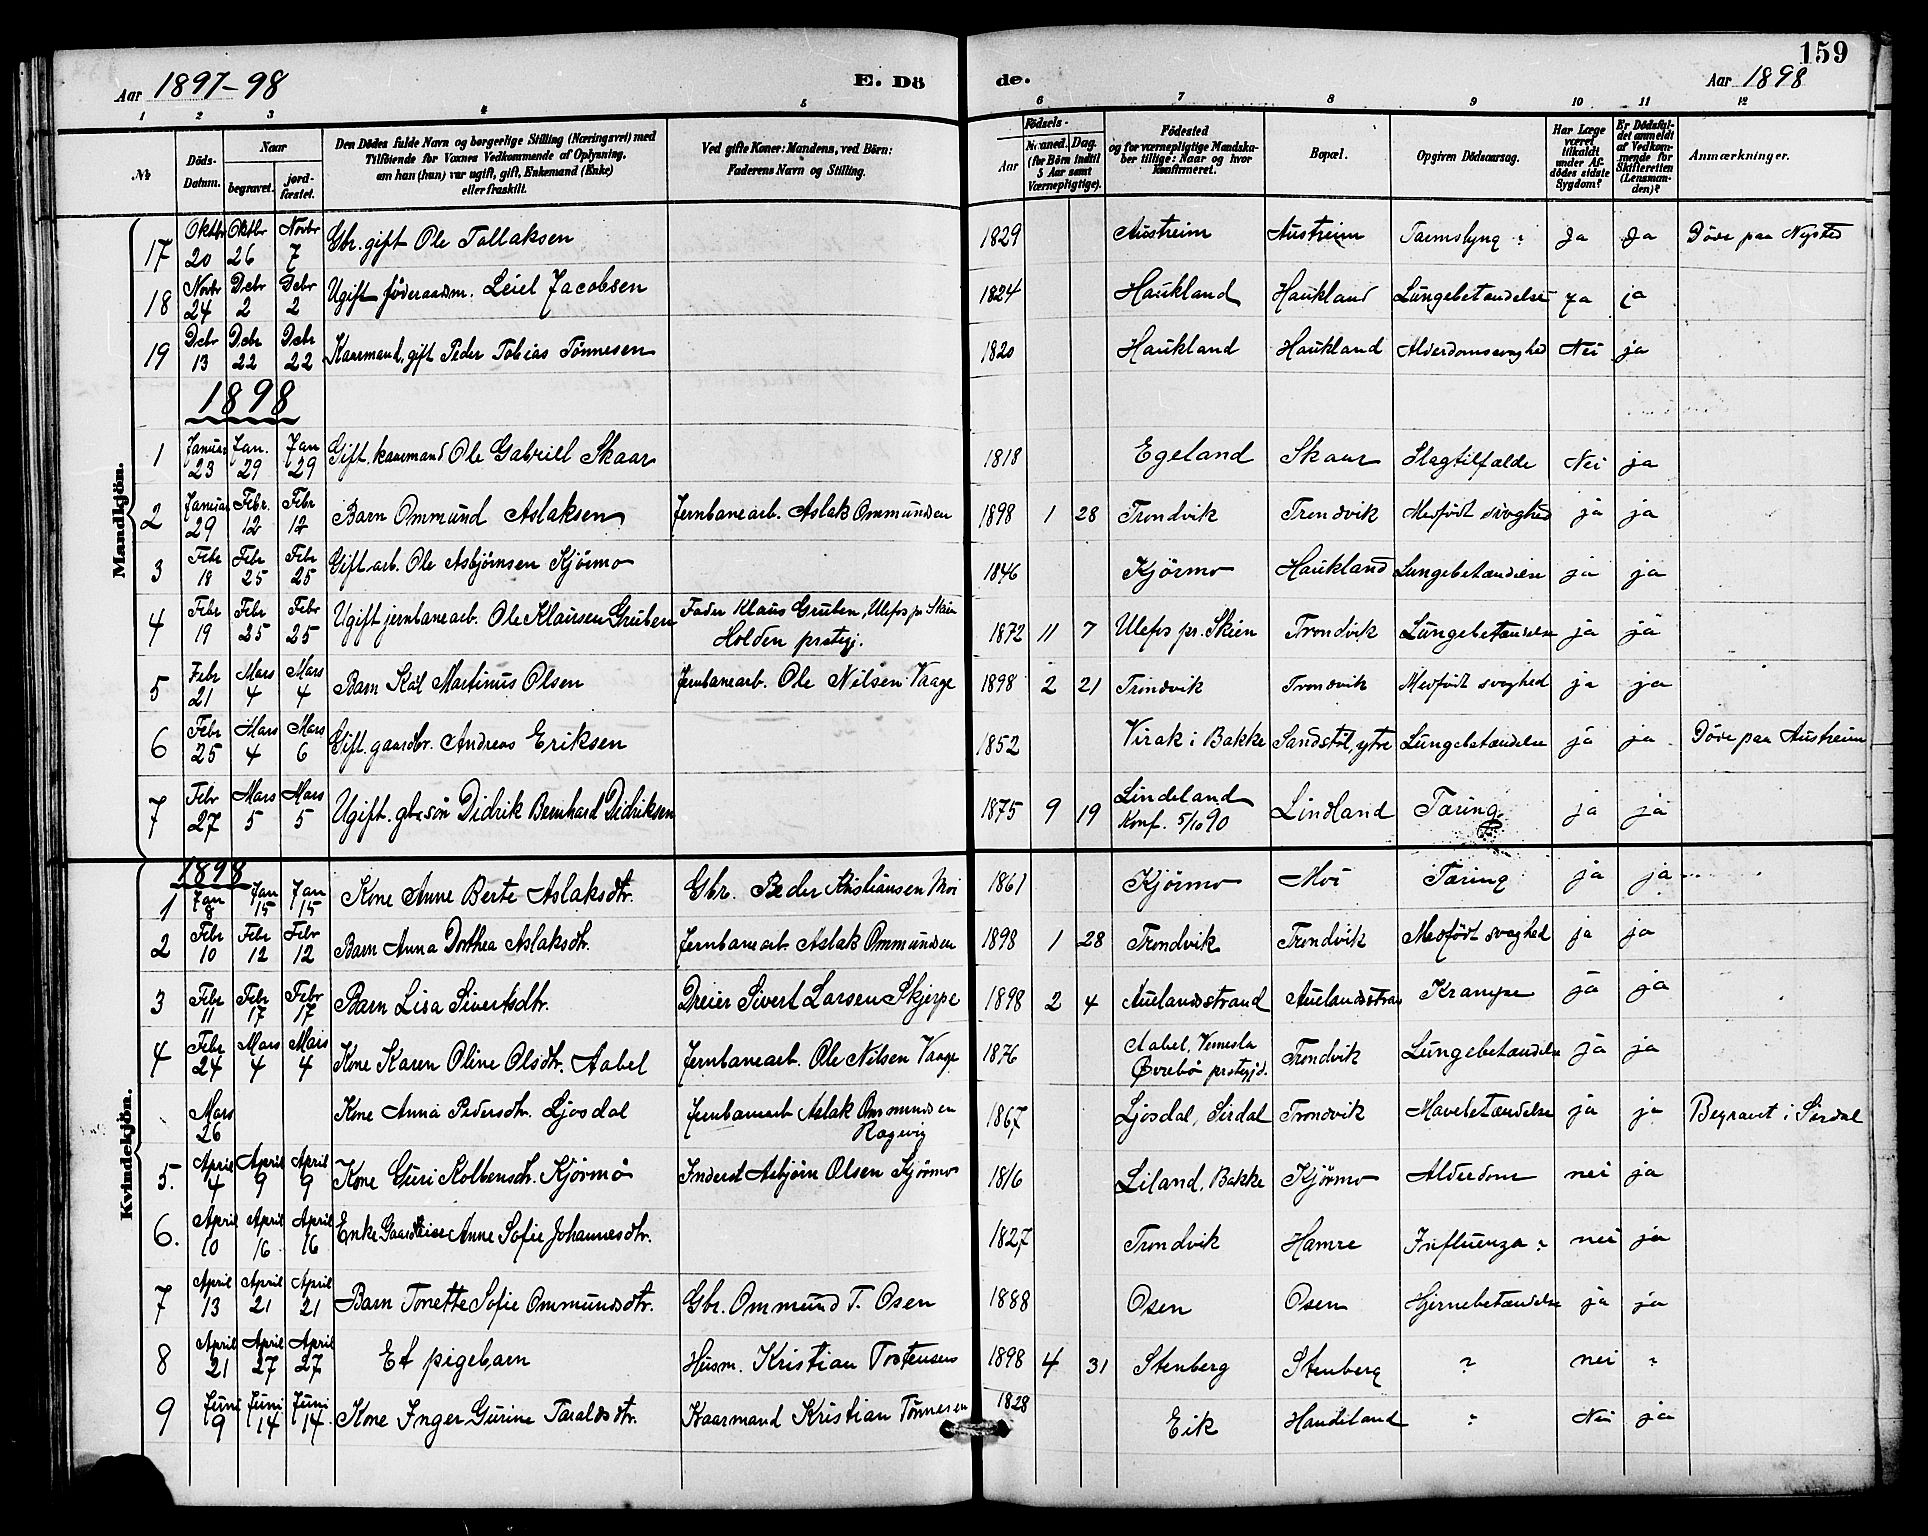 159
Aar 1897-98 E. Dö de. Aar 1898
1 2 3 4 5 6 7 8 9 10 11 12
№ Döds-Datum. Naar begravet. jordfæstet. Den Dödes fulde Navn og borgerlige Stilling (Næringsvei) med Tilföiende for Voxnes Vedkommende af Oplysning, om han (hun) var ugift, gift, Enkemand (Enke) eller fraskilt. Ved gifte Koner: Mandens, ved Börn: Faderens Navn og Stilling. Födsels- Aar Maaned. Dag. (for Börn indtil 5 Aar samt Værnepligtige). Födested og for værnepligtige Mandskaber tillige: Naar og hvor konfirmeret. Bopæl. Opgiven Dödsaarsag. Har Læge været tilkaldt under Afdödes sidste Sygdom? Er Dödsfaldet anmeldt af Vedkommende for Skifteretten (Lensmanden)? Anmærkninger.
Mandkjön.
17 Oktbr 20 Oktbr 26 Novbr 7 Gbr. gift Ole Tollaksen 1829 Austreim Austreim Ja Ja Döde paa Nysted
18 Novbr 24 Debr 2 Debr 2 Ugift föderaadsm. Leiel Jacobsen 1824 Haukland Haukland Lungebetændelse ja ja
19 Debr 13 Debr 22 Debr 22 Kaarmand, gift Peder Tobias Tönnesen 1820 Haukland Haukland Alderdomssvaghed Nei ja
1898
1 Januar 23 Jan. 29 Jan 29 Gift. kaarmand Ole Gabriel Skaar 1818 Egeland Skaar Slagtilfælde Nei ja
2 Januar 29 Febr. 12 Febr 12 Barn Ommund Aslaksen Jernbanearb. Aslak Ommundsen 1898 1 28 Trondvik Trondvik Medfödt svaghed ja ja
3 Febr 18 Febr 25 Febr 25 Gift arb. Ole Asbjörnsen Kjörmo 1846 Kjörmo Haukland Lungebetændelse ja ja
4 Febr 19 Febr 25 Febr 25 Ugift jernbanearb. Ole Klausen Gruben Fader Klaus Gruben, Ulefos pr Skien
Holden prstgj. 1872 11 7 Ulefos pr. Skien Trondvik Lungebetændelse ja ja
5 Febr 21 Mars 4 Mars 4 Barn Karl Martinus Olsen Jernbanearb. Ole Nilsen Vaage 1898 2 21 Trondvik Trondvik Medfödt svaghed ja ja
6 Febr 25 Mars 4 Mars 6 Gift. gaardbr. Andreas Eriksen 1852 Virak i Bakke Sandstöl, ytre Lungebetændelse ja ja Döde paa Austreim
7 Febr 27 Mars 5 Mars 5 Ugift. gbr. sön Didrik Bernhard Didriksen 1875 9 19 Lindeland
Konf. 5/10 90 Lindland Tæring ja ja
Kvindekjön.
1898
1 Jan 8 Jan 15 Jan 15 Kone Anne Berte Aslaksdtr. Gbr. Peder Kristiansen Moi 1861 Kjörmo Moi Tæring ja ja
2 Febr 10 Febr 12 Febr 12 Barn Anna Dorthea Aslaksdtr. Jernbanearb. Aslak Ommundsen 1898 1 28 Trondvik Trondvik Medfödt svaghed ja ja
3 Febr 11 Febr 17 Febr 17 Barn Lisa Sivertsdtr. Dreier Sivert Larsen Skjerpe 1898 2 4 Auelandsstrand Auelandsstran Krampe ja ja
4 Febr 24 Mars 4 Mars 4 Kone Karen Oline Olsdtr. Aabel Jernbanearb. Ole Nilsen Vaage 1876 Aabel, Vennesla
Övrebö prstgjd. Trondvik Lungebetændelse ja ja
Mars 26 Kone Anna Pedersdtr. Ljosdal Jernbanearb Aslak Ommundsen
Rægevig 1867 Ljosdal, Sirdal Trondvik Mavebetændelse ja ja Begravet i Sirdal
5. April 4 April 9 April 9 Kone Guri Kolbensdtr. Kjörmo Inderst Asbjörn Olsen Kjörmo 1816 Liland, Bakke Kjörmo Alderdom nei ja
6. April 10 April 16 April 16 Enke Anne Sofie Johannesdtr. 1827 Trondvik Hamre Influenza ? nei ja
7 April 13 April 21 April 21 Barn Tonette Sofie Ommundsdtr. Gbr. Ommund T. Osen 1888 Osen Osen Hjernebetændelse ja ja
8 April 21 April 27 April 27 Et pigebarn Husm. Kristian Torstensen 1898 4 31 Stenberg Stenberg ? nei ?
9 Juni 9 Juni 14 Juni 14 Kone Inger Gurine Taraldsdtr. Kaarmand Kristian Tönnesen 1828 Eik Handeland ? Nei ja